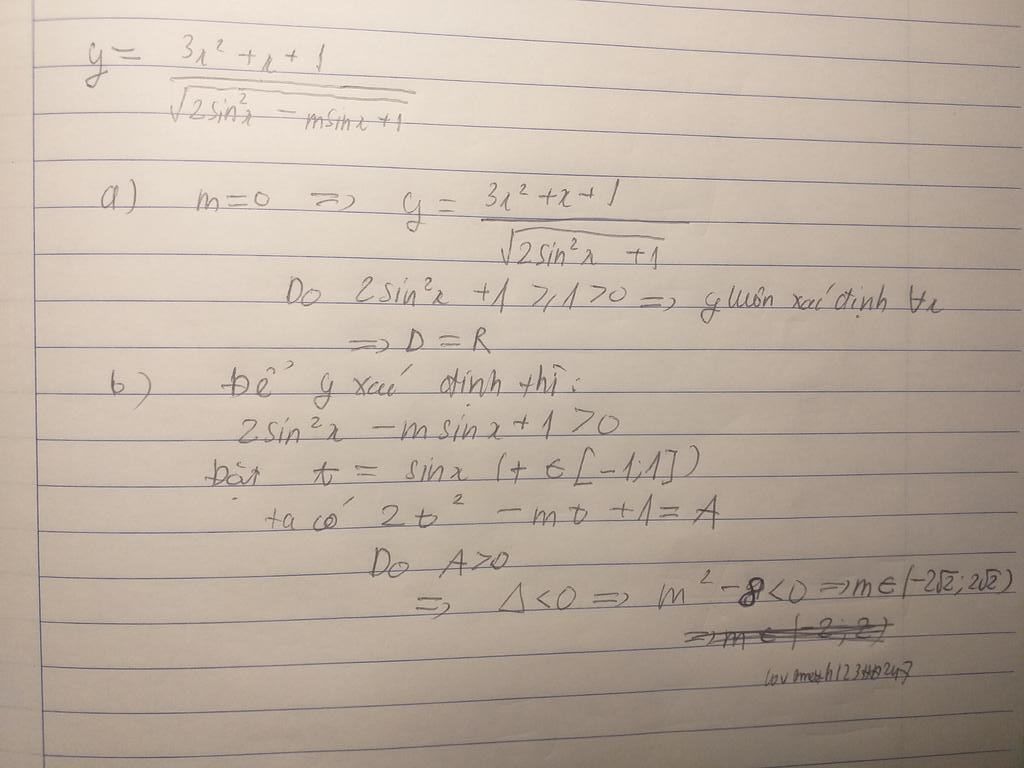 y = (3x² + x + 1) / √(2sin²x - msinx + 1)
a) m = 0 => y = (3x² + x + 1) / √(2sin²x + 1)
Do 2sin²x + 1 ≥ 1 > 0 => y luôn xác định ∀x
=> D = R
b) Để y xác định thì:
2sin²x - msinx + 1 > 0
Đặt t = sinx (t ∈ [-1;1])
ta có 2t² - mt + 1 = A
Do A > 0
=> Δ < 0 => m² - 8 < 0 => m ∈ (-2√2; 2√2)
=> m ∈ (-2; 2)